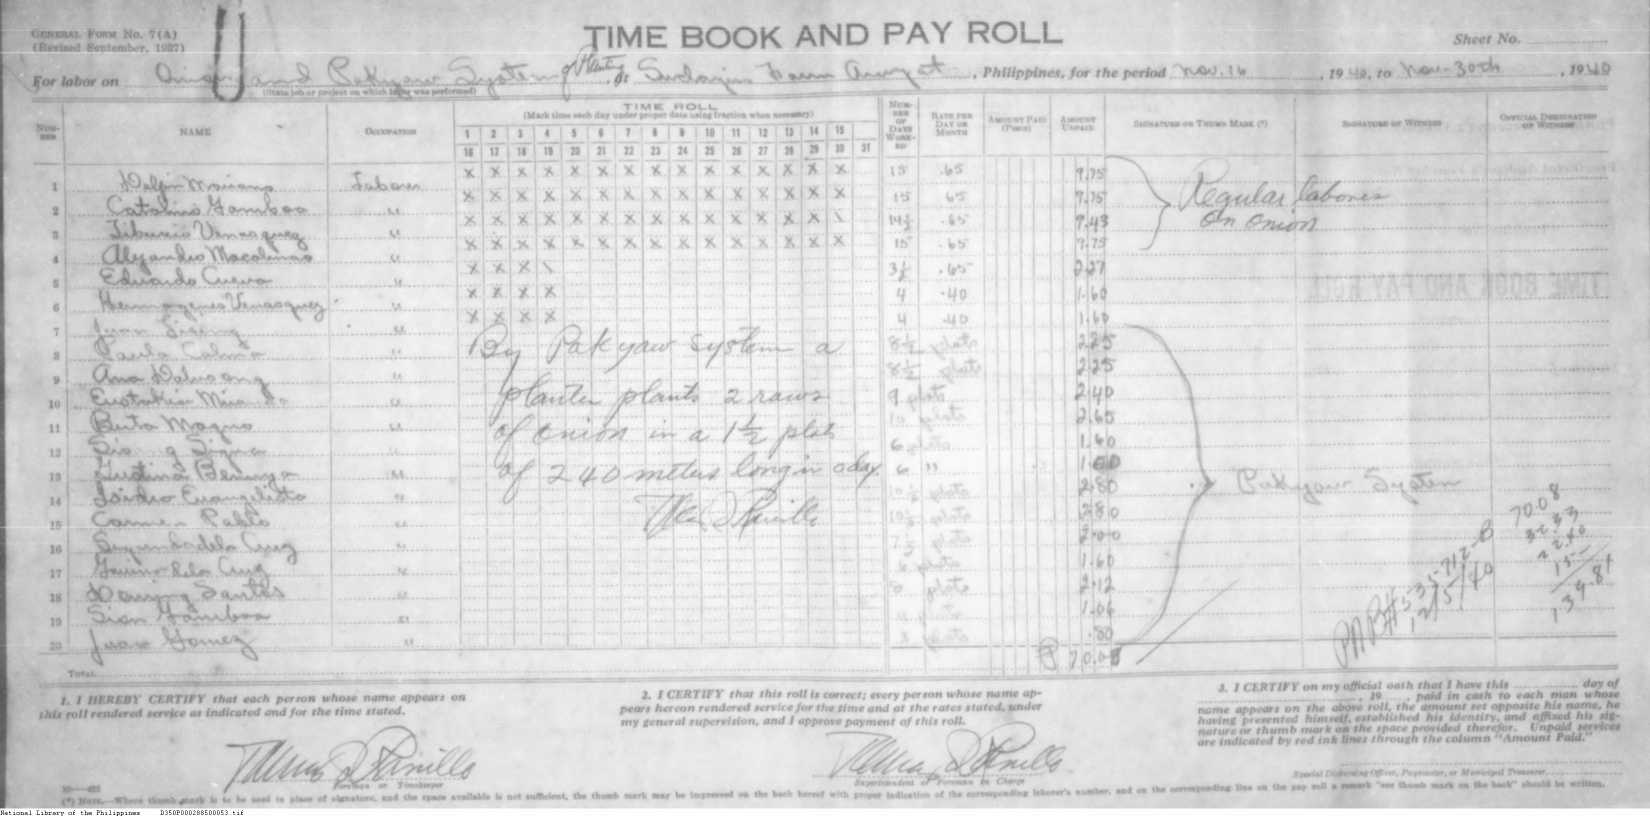 GENERAL FORM NO. 7(A)
(Revised September, 1927)
TIME BOOK AND PAY ROLL
Sheet No.
For labor on Onion and Pakyaw System of Planting at Farm, Philippines, for the period Nov. 16, 1940, to Nov. 30th, 1940
(State job or project on which labor was performed)
NUMBER NAME OCCUPATION
TIME ROLL
(Mark time each day under proper date using fraction when necessary)
1 2 3 4 5 6 7 8 9 10 11 12 13 14 15
16 17 18 19 20 21 22 23 24 25 26 27 28 29 30 31
NUMBER OF DAYS WORKED RATE PER DAY OR MONTH AMOUNT PAID (Pesos) AMOUNT UNPAID SIGNATURE OR THUMB MARK (*) SIGNATURE OF WITNESS OFFICIAL DESIGNATION OF WITNESS
1 Delfin Mariano Laborer x x x x x x x x x x x x x x x 15 .65 9.75
2 Catalino Gamboa " x x x x x x x x x x x x x x x 15 65 9.75
3 Tiburcio Venasquez " x x x x x x x x x x x x x x \ 14½ .65 9.43
4 Alejandro Macalinao " x x x x x x x x x x x x x x x 15 .65 9.75
5 Eduardo Cueva " x x x \ 3½ .65 2.27
6 Hermogenes Venasquez " x x x x 4 .40 1.60
7 Juan " x x x x 4 .40 1.60
Regular labores
On onion
8 Paula Calma " 8½ plots 2.25
9 Ana " 8½ plots 2.25
10 " 9 plots 2.40
11 Berta Magno " 10 plots 2.65
12 6 plots 1.60
13 " 6 " 1.60
14 Isidro Evangelista " 10½ plots 2.80
15 Carmen Pablo " 10½ plots 2.80
16 dela Cruz " 7½ plots 2.00
17 dela Cruz " 6 plots 1.60
18 Santos " 8 plots 2.12
19 Sion Gamboa " 1.06
20 Juan Gomez " 3 plots .80
By Pakyaw System a
planter plants 2 raws
of onion in a 1½ plots
of 240 meters long in a day.
Pakyaw System
TOTAL ₱ 70.08
PNB# 535712-B
12/5/40
70.08
32.33
22.40
15.-
139.81
1. I HEREBY CERTIFY that each person whose name appears on
this roll rendered service as indicated and for the time stated.
Foreman or Timekeeper
2. I CERTIFY that this roll is correct; every person whose name ap-
pears hereon rendered service for the time and at the rates stated, under
my general supervision, and I approve payment of this roll.
Superintendent or Foreman in Charge
3. I CERTIFY on my official oath that I have this day of
, 19 , paid in cash to each man whose
name appears on the above roll, the amount set opposite his name, he
having presented himself, established his identity, and affixed his sig-
nature or thumb mark on the space provided therefor. Unpaid services
are indicated by red ink lines through the column "Amount Paid."
Special Disbursing Officer, Paymaster, or Municipal Treasurer.
(*) NOTE.—Where thumb mark is to be used in place of signature, and the space available is not sufficient, the thumb mark may be impressed on the back hereof with proper indication of the corresponding laborer's number, and on the corresponding line on the pay roll a remark "see thumb mark on the back" should be written.
National Library of the Philippines D350P000288500053.tif